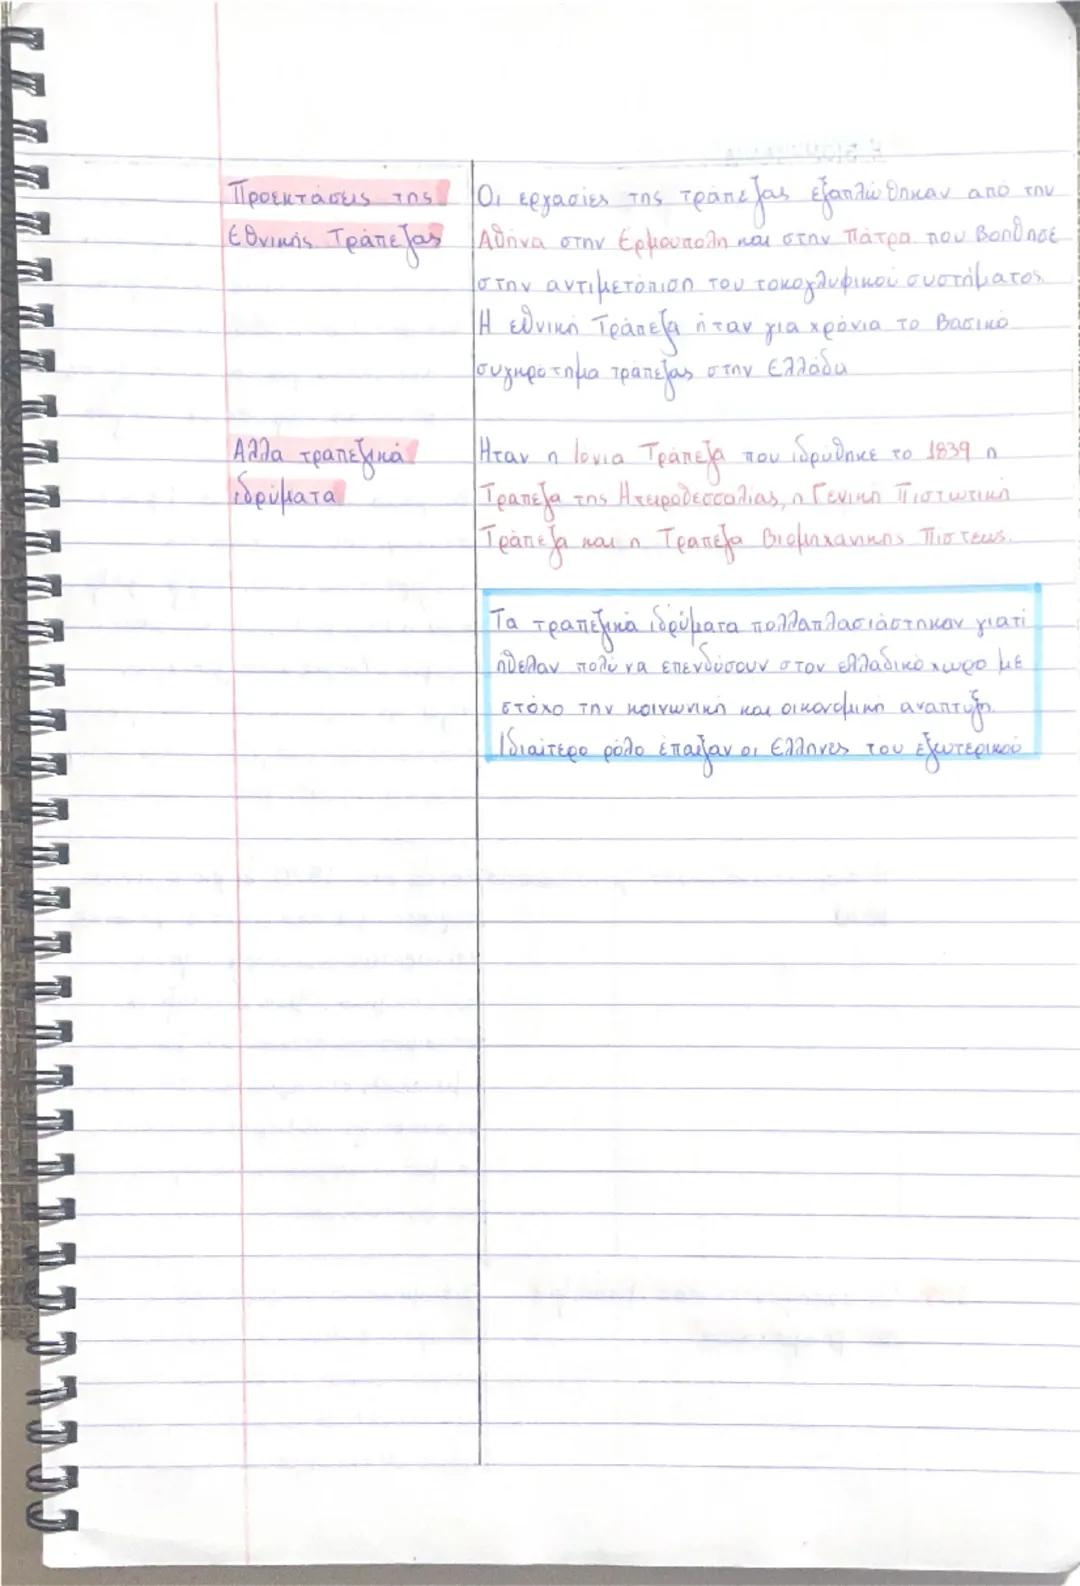 Προεκτάσεις της
Εθνικής Τράπεζας
Οι εργασίες της τράπεζας εξαπλώθηκαν από την
Αθήνα στην Ερμούπολη και στην Πάτρα που βοήθησε
στην αντιμετόπιση του τοκογλυφικού συστήματος.
Η εθνική Τράπεζα ήταν για χρόνια το βασικό
συγκρότημα τράπεζας στην Ελλάδα
Αλλα τραπεζικά
ιδρύματα
Ηταν η Ιονια Τράπεζα που ιδρύθηκε το 1839 η
Τραπεζα της Ηπειροθεσσαλίας, η Γενική Πιστωτική
Τράπεζα και η Τραπεζα Βιομηχανικής Πιστεως.
Τα τραπεζικά ιδρύματα πολλαπλασιάστηκαν γιατί
ήθελαν πολύ να επενδύσουν στον ελλαδικό χωρο με
στόχο την κοινωνική και οικονομική αναπτυξη.
Ιδιαίτερο ρόλο έπαιξαν οι Ελληνες του εξωτερικού